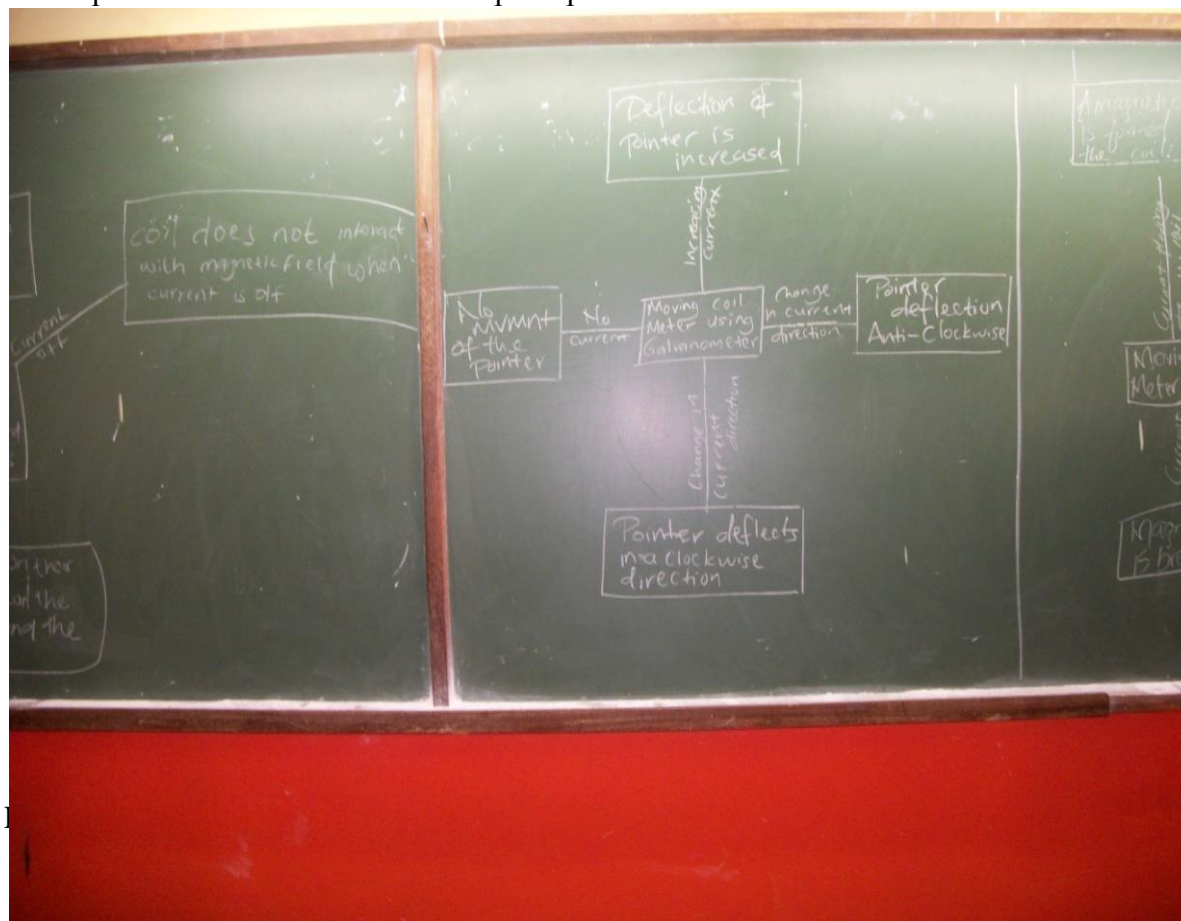 coil does not interact
with magnetic field when
current is off
Current
off
on their
and the
Deflection of
pointer is
increased
Increasing
current
No
Mvmnt
of the
Pointer
No
current
Moving coil
Meter using
Galvanometer
Change
in current
direction
Pointer
deflection
Anti-Clockwise
Change in
current
direction
Pointer deflects
in a clockwise
direction
is formed
the coil
Current
Meter